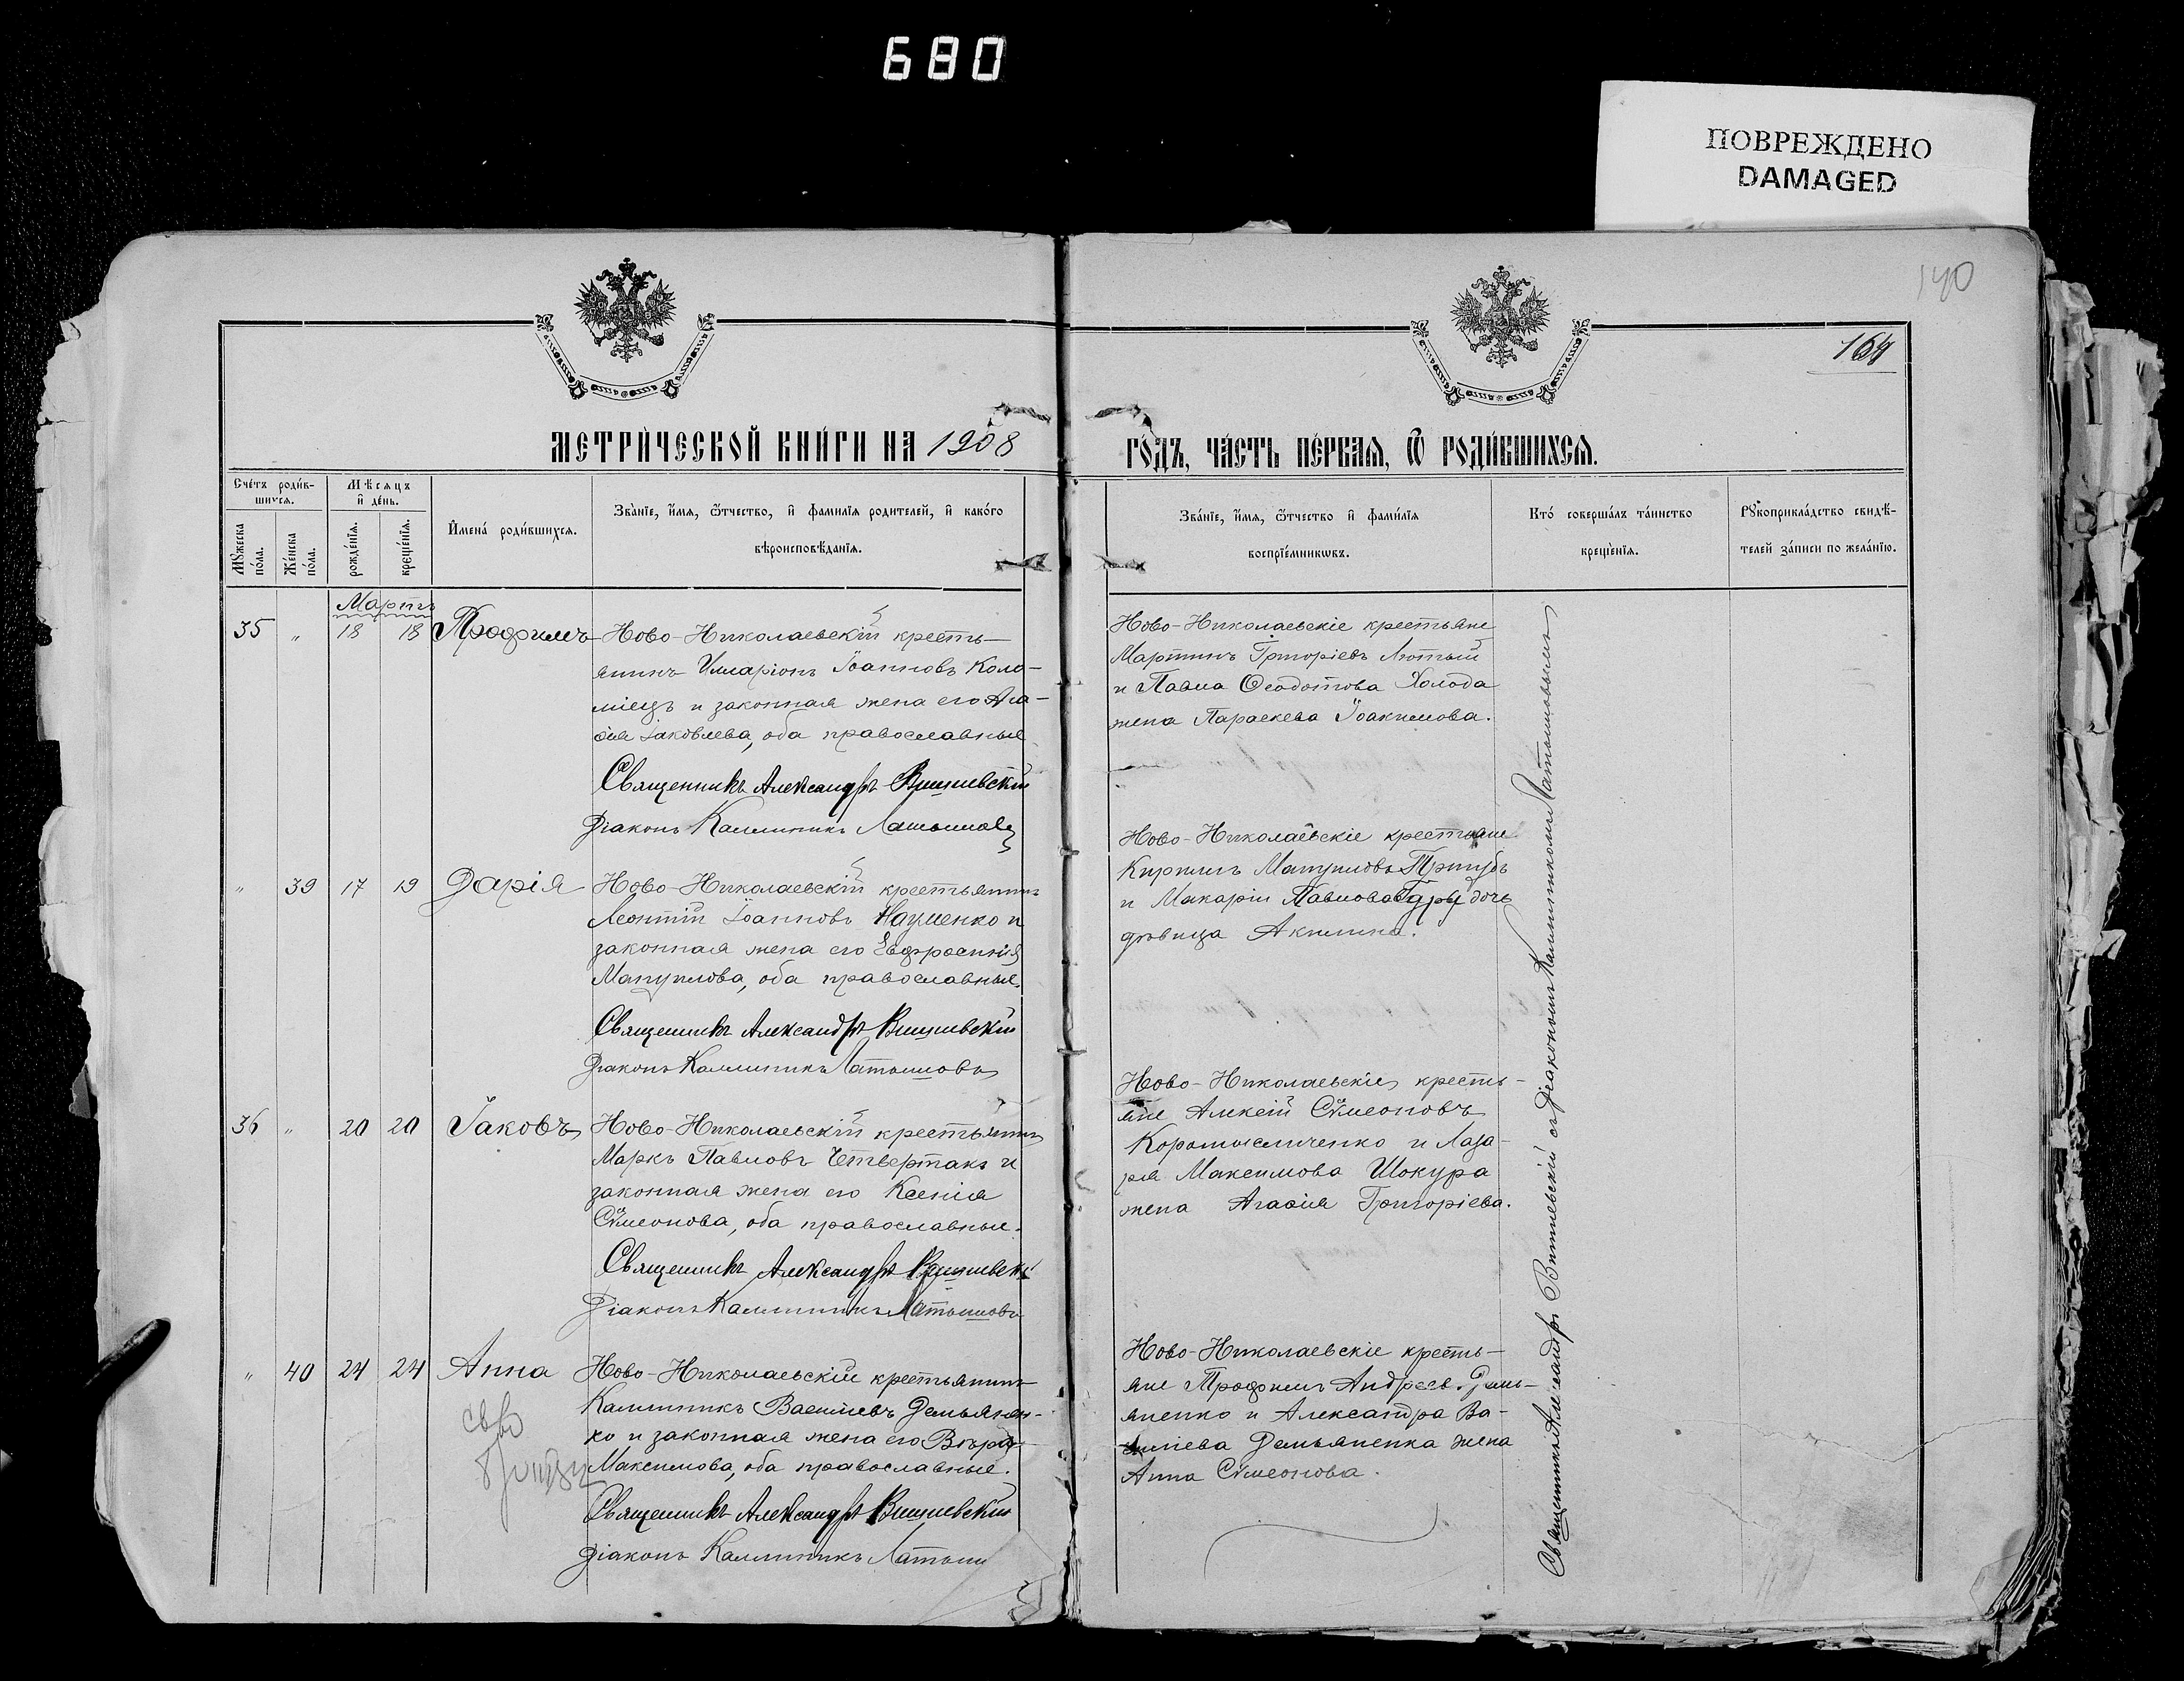 680
ПОВРЕЖДЕНО
DAMAGED
140
164
МЕТРИЧЕСКОЙ КНИГИ НА 1908
ГОДЪ, ЧАСТЬ ПЕРВАЯ, Ѿ РОДИВШИХСЯ.
Счетъ родив-
шихся.
Мѣсяцъ
и день.
Мужеска
пола.
Женска
пола.
рожденія.
крещенія.
Имена родившихся.
Званіе, имя, ѿчество, и фамилія родителей, и какого
вѣроисповѣданія.
Званіе, имя, ѿчество и фамилія
воспріемниковъ.
Кто совершалъ таинство
крещенія.
Рукоприкладство свидѣ-
телей записи по желанію.
Мартъ
35 " 18 18 Трофимъ
Ново-Николаевскій кресть-
янинъ Илларіонъ Іоанновъ Коло-
міецъ и законная жена его Ага-
ѳія Іаковлева, оба православные
Священникъ Александръ Вишневскій
Діаконъ Каллиникъ Латышовъ
Ново-Николаевскіе крестьяне
Мартинъ Григоріевъ Лютый
и Павла Ѳеодотова Холода
жена Параскева Іоакимова.
" 39 17 19 Дарія
Ново-Николаевскій крестьянинъ
Леонтій Іоанновъ Науменко и
законная жена его Евфросинія
Мануилова, оба православные.
Священникъ Александръ Вишневскій
Діаконъ Каллиникъ Латышовъ
Ново-Николаевскіе крестьяне
Кириллъ Мануиловъ
и Макарія Павлова дочь
дѣвица Акилина.
36 " 20 20 Іаковъ
Ново-Николаевскій крестьянинъ
Маркъ Павловъ Четвертакъ и
законная жена его Ксенія
Сѵмеонова, оба православные.
Священникъ Александръ Вишневскій
Діаконъ Каллиникъ Латышовъ
Ново-Николаевскіе кресть-
яне Алексій Сѵмеоновъ
Коромысличенко и Лаза-
ря Максимова Шокура
жена Агаѳія Григоріева.
" 40 24 24 Анна
Ново-Николаевскій крестьянинъ
Каллиникъ Васильевъ Демьянен-
ко и законная жена его Вѣра
Максимова, оба православные.
Священникъ Александръ Вишневскій
Діаконъ Каллиникъ Латыш
Ново-Николаевскіе кресть-
яне Трофимъ Андреев. Демь-
яненко и Александра Ва-
силіева Демьяненка жена
Анна Сѵмеонова.
Священникъ Александръ Вишневскій съ діакономъ Каллиникомъ Латышовымъ